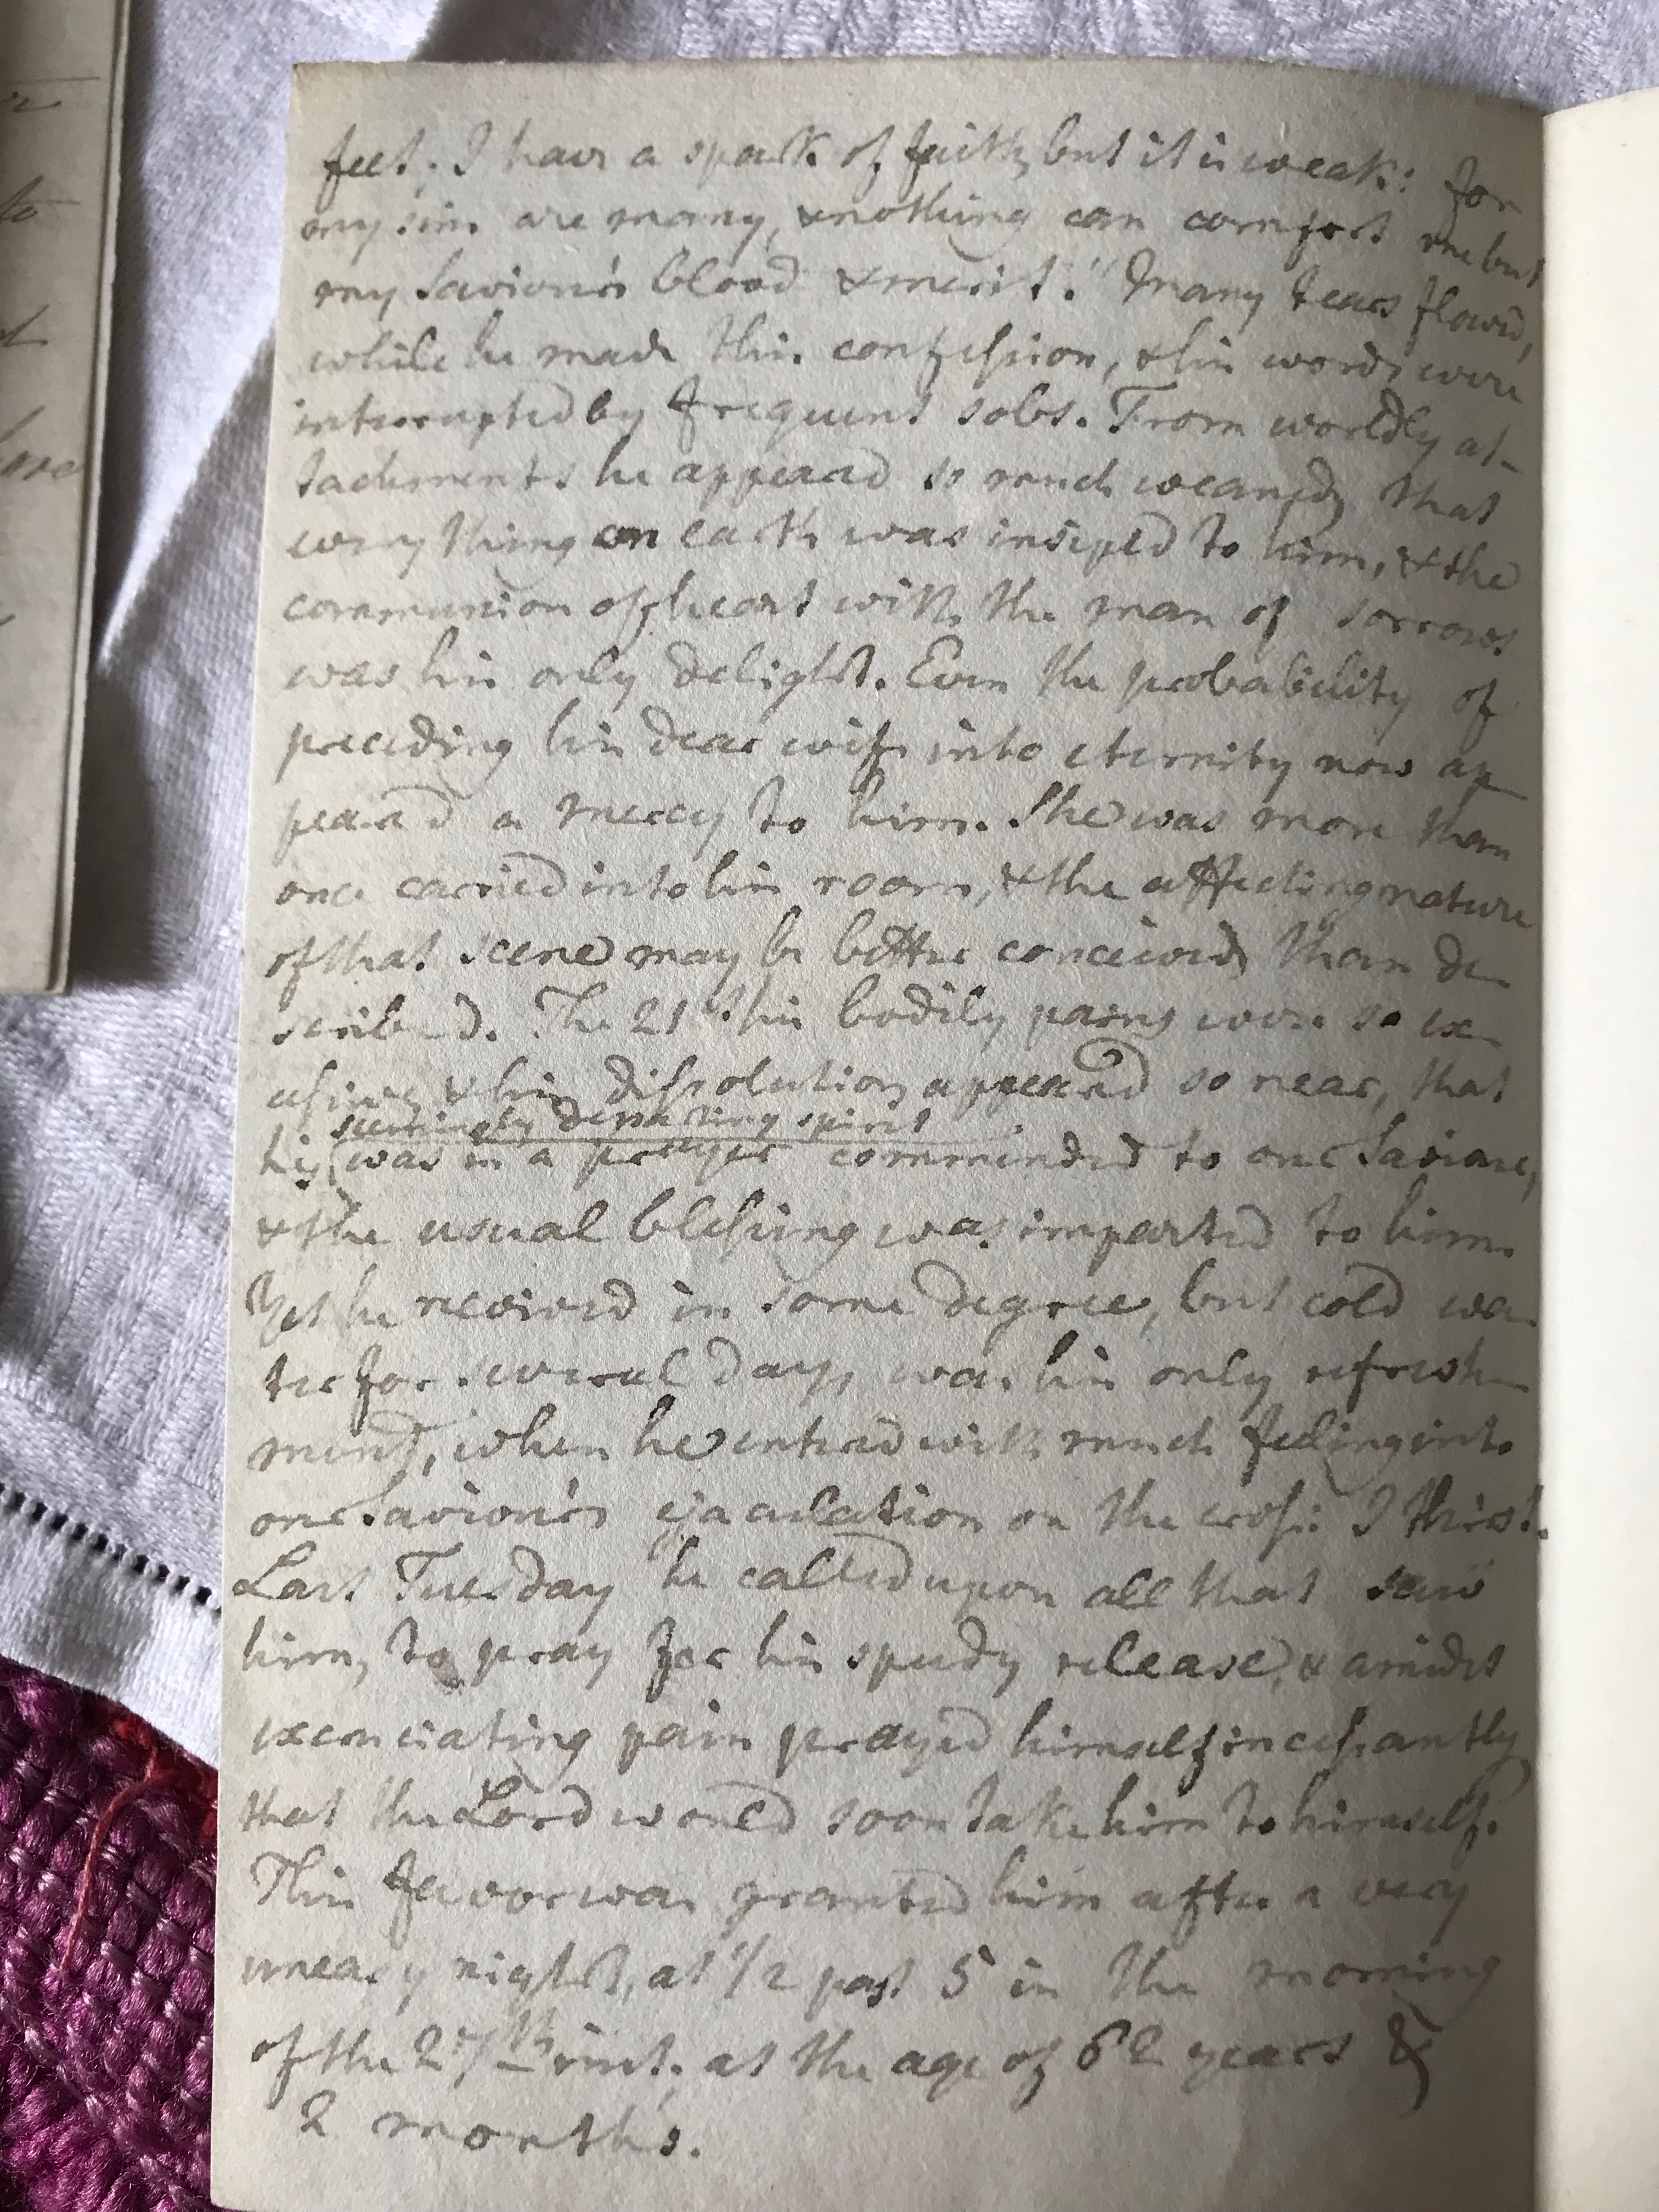 feet; I have a spark of faith, but it is weak: for
my sins are many, & nothing can comfort me but
my Saviour's blood & merit." Many tears flow'd,
while he made this confession, & his words were
interrupted by frequent sobs. From worldly at-
tachments he appeard so much weaned, that
every thing on earth was insiped to him, & the
communion of heart with the man of sorrows
was his only delight. Even the probability of
preceding his dear wife into eternity now ap
peard a mercy to him. She was more than
once carried into his room, & the affecting nature
of that scene may be better conceived than de
scribed. The 21st his bodily pains were so ex
cessive & his dissolution appeard so near, that
seemingly departing spirit
his was in a prayer commended to our Saviour,
& the usual blessing was imparted to him.
Yet he revived in some degree, but cold wa
ter for several days was his only refresh
ment, when he entred with much feeling into
our Saviour's ejaculation on the cross: I thirst.
Last Tuesday he called upon all that saw
him, to pray for his speedy release, & amidst
excruciating pain prayed himself incessantly
that the Lord would soon take him to himself.
This favor was granted him after a very
uneasy night, at 1/2 past 5 in the morning
of the 27th inst. at the age of 62 years &
2 months.